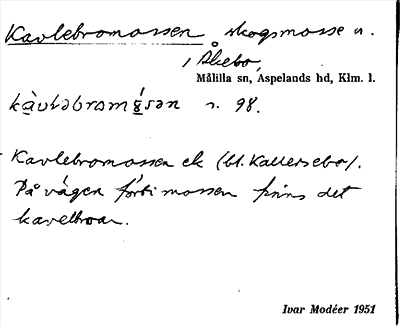 Kavlebromossen skogsmosse n.
i Åkebo,
Målilla sn, Aspelands hd, Klm. l.
s. 98.
Kavlebromossen ek (bl. Kallersebo).
På vägen förbi mossen finns det
kavelbroar.
Ivar Modéer 1951